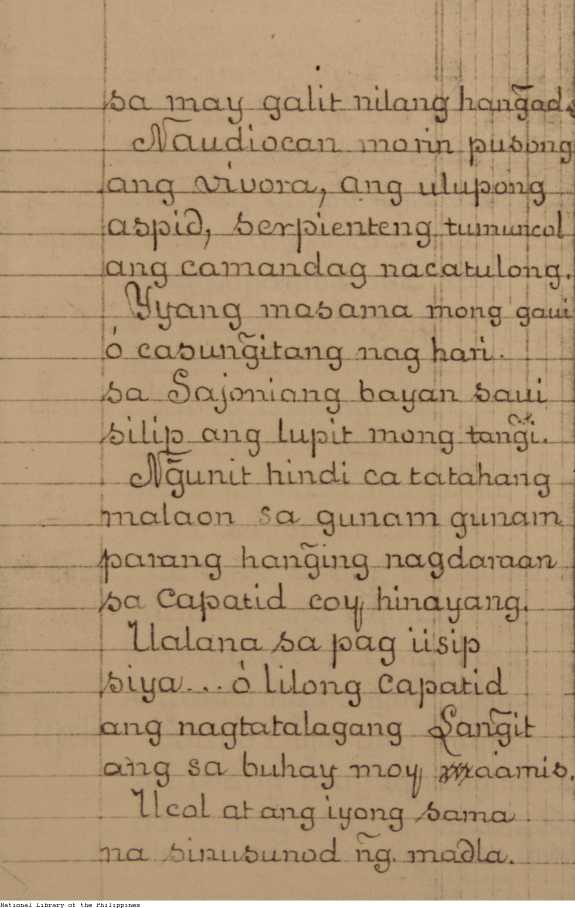 sa may galit nilang hang̃ad.
Naudiocan morin pusong
ang vivora, ang ulupong
aspid, serpienteng tumuncol
ang camandag nacatulong.
Yyang masama mong gaui
ó casung̃itang nag hari.
sa Sajoniang bayan saui
silip ang lupit mong tang̃i.
Ng̃unit hindi ca tatahang
malaon sa gunam gunam
parang hang̃ing nagdaraan
sa capatid coy, hinayang.
Ualana sa pag iisip
siya... ó lilong capatid
ang nagtatalagang Lang̃it
ang sa buhay moy, aamis.
Ucol at ang iyong sama
na sinusunod ñg. madla.
National Library of the Philippines